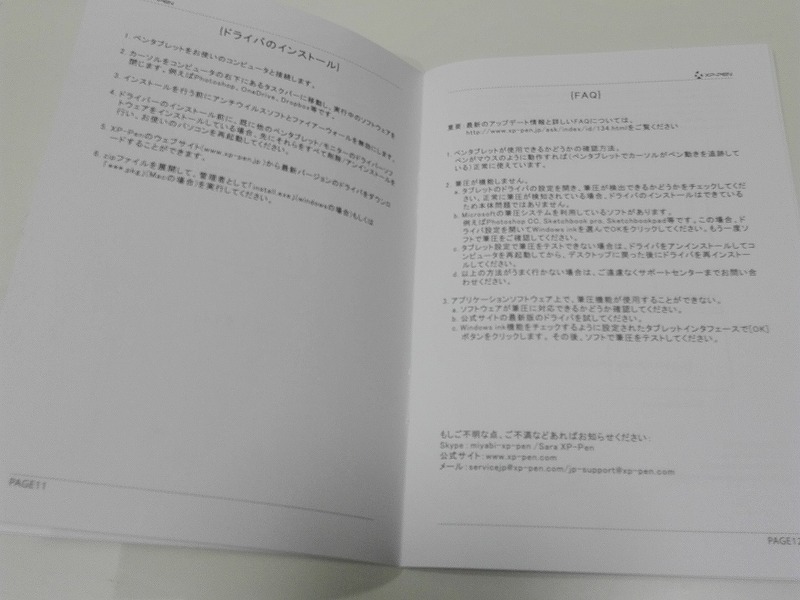 XP-PEN
[ドライバのインストール]
1. ペンタブレットをお使いのコンピュータと接続します。
2. カーソルをコンピュータの右下にあるタスクバーに移動し、実行中のソフトウェアを
閉じます。例えばPhotoshop、OneDrive、Dropbox等です。
3. インストールを行う前にアンチウイルスソフトとファイアーウォールを無効にします。
4. ドライバーのインストール前に、既に他のペンタブレット/モニターのドライバーソフ
トウェアをインストールしている場合、先にそれらをすべて削除/アンインストールを
行い、お使いのパソコンを再起動してください。
5. XP-Penのウェブサイト(www.xp-pen.jp)から最新バージョンのドライバをダウンロ
ードすることができます。
6. zipファイルを展開して、管理者として「install.exe」(windowsの場合)もしくは
「www.pkg」(Macの場合)を実行してください。
PAGE11
XP-PEN
[FAQ]
重要: 最新のアップデート情報と詳しいFAQについては、
http://www.xp-pen.jp/ask/index/id/134.htmlをご覧ください
1. ペンタブレットが使用できるかどうかの確認方法。
ペンがマウスのように動作すれば(ペンタブレットでカーソルがペン動きを追跡して
いる)正常に使えています。
2. 筆圧が機能しません。
a. タブレットのドライバの設定を開き、筆圧が検出できるかどうかをチェックしてくだ
さい。正常に筆圧が検知されている場合、ドライバのインストールはできている
ため本体問題ではありません。
b. Microsoftの筆圧システムを利用しているソフトがあります。
例えばPhotoshop CC、Sketchbook pro、Sketchbookpad等です。この場合、ド
ライバ設定を開いてWindows inkを選んでOKをクリックしてください。もう一度ソ
フトで筆圧をご確認してください。
c. タブレット設定で筆圧をテストできない場合は、ドライバをアンインストールしてコ
ンピュータを再起動してから、デスクトップに戻った後にドライバを再インストー
ルしてください。
d. 以上の方法がうまく行かない場合は、ご遠慮なくサポートセンターまでお問い合
わせください。
3. アプリケーションソフトウェア上で、筆圧機能が使用することができない。
a. ソフトウェアが筆圧に対応できるかどうか確認してください。
b. 公式サイトの最新版のドライバを試してください。
c. Windows ink機能をチェックするように設定されたタブレットインタフェースで[OK]
ボタンをクリックします。その後、ソフトで筆圧をテストしてください。
もしご不明な点、ご不満などあればお知らせください:
Skype: miyabi-xp-pen /Sara XP-Pen
公式サイト: www.xp-pen.com
メール: servicejp@xp-pen.com/jp-support@xp-pen.com
PAGE12